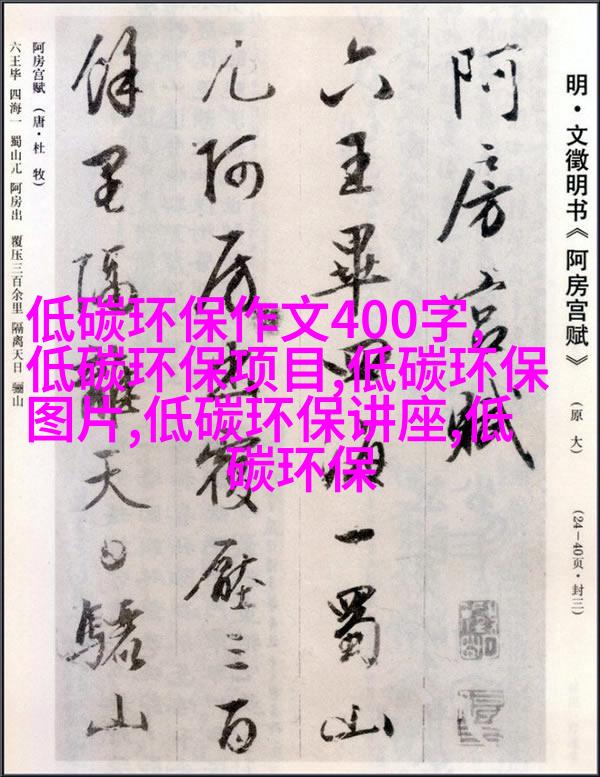 明·文徵明书《阿房宫赋》
(原大)
(24—40页·封三)
阿房宮賦
六王畢四海一蜀山
兀阿房出覆壓三百
餘里隔離天日驪山
阿房宫赋（唐·杜牧）
六王毕 四海一 蜀山兀 阿房出 覆压三百余里 隔离天日 骊山
低碳环保作文400字,
低碳环保项目,低碳环保
图片,低碳环保讲座,低
碳环保